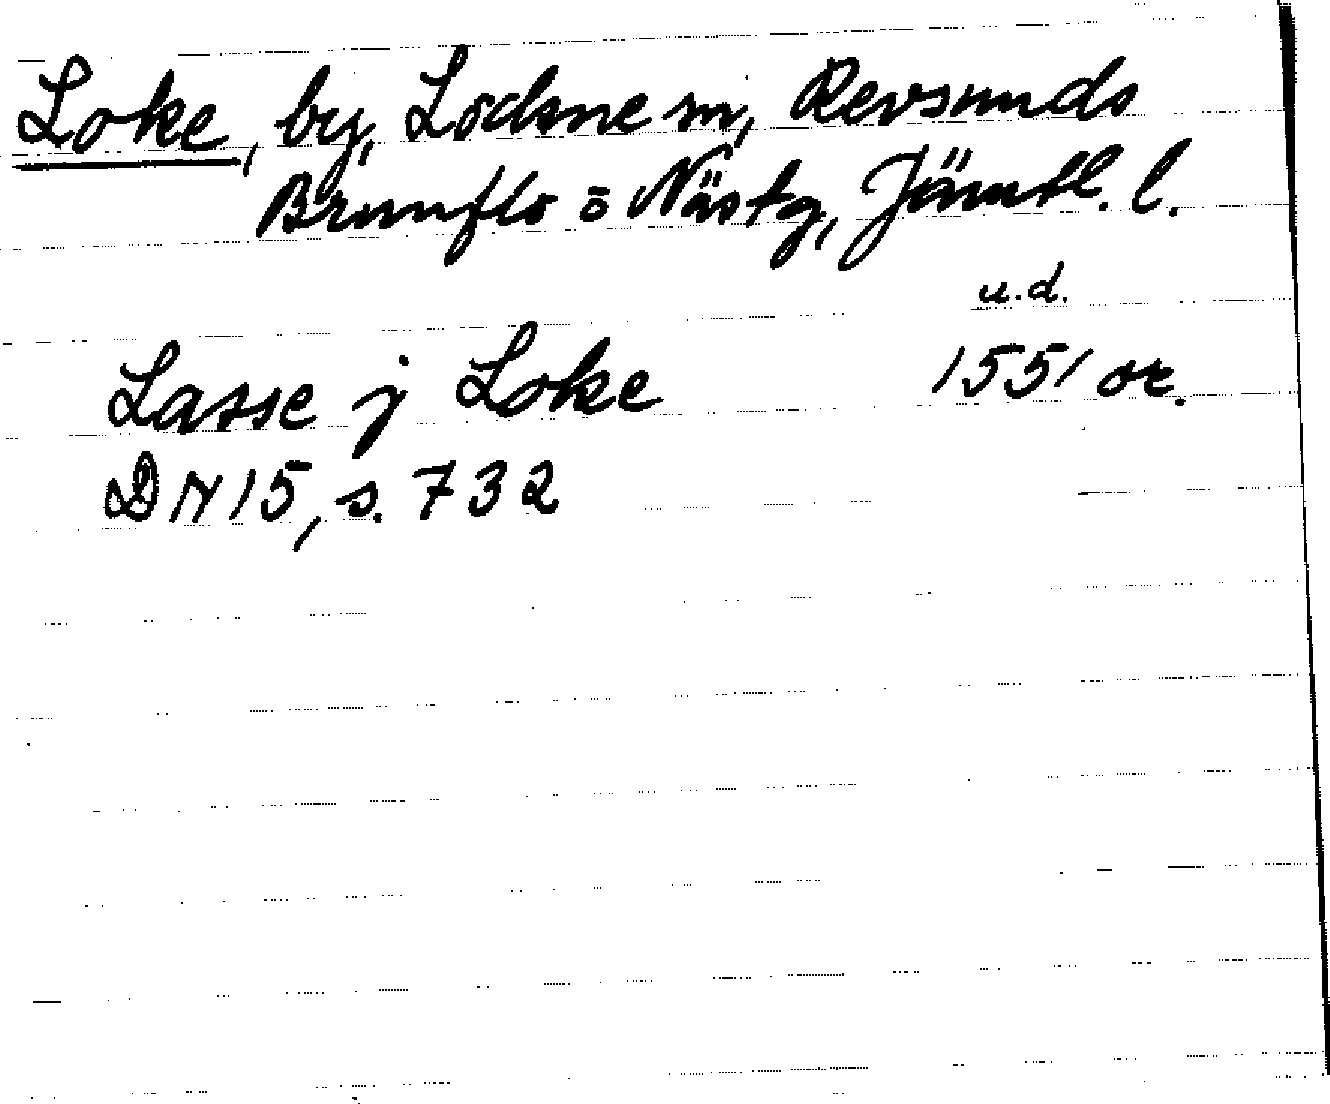 Loke, by, Lockne sn, Revsunds
Brunflo o Näs tg, Jämtl. l.
u.d.
Lasse j Loke 1551 or.
DN 15, s. 732